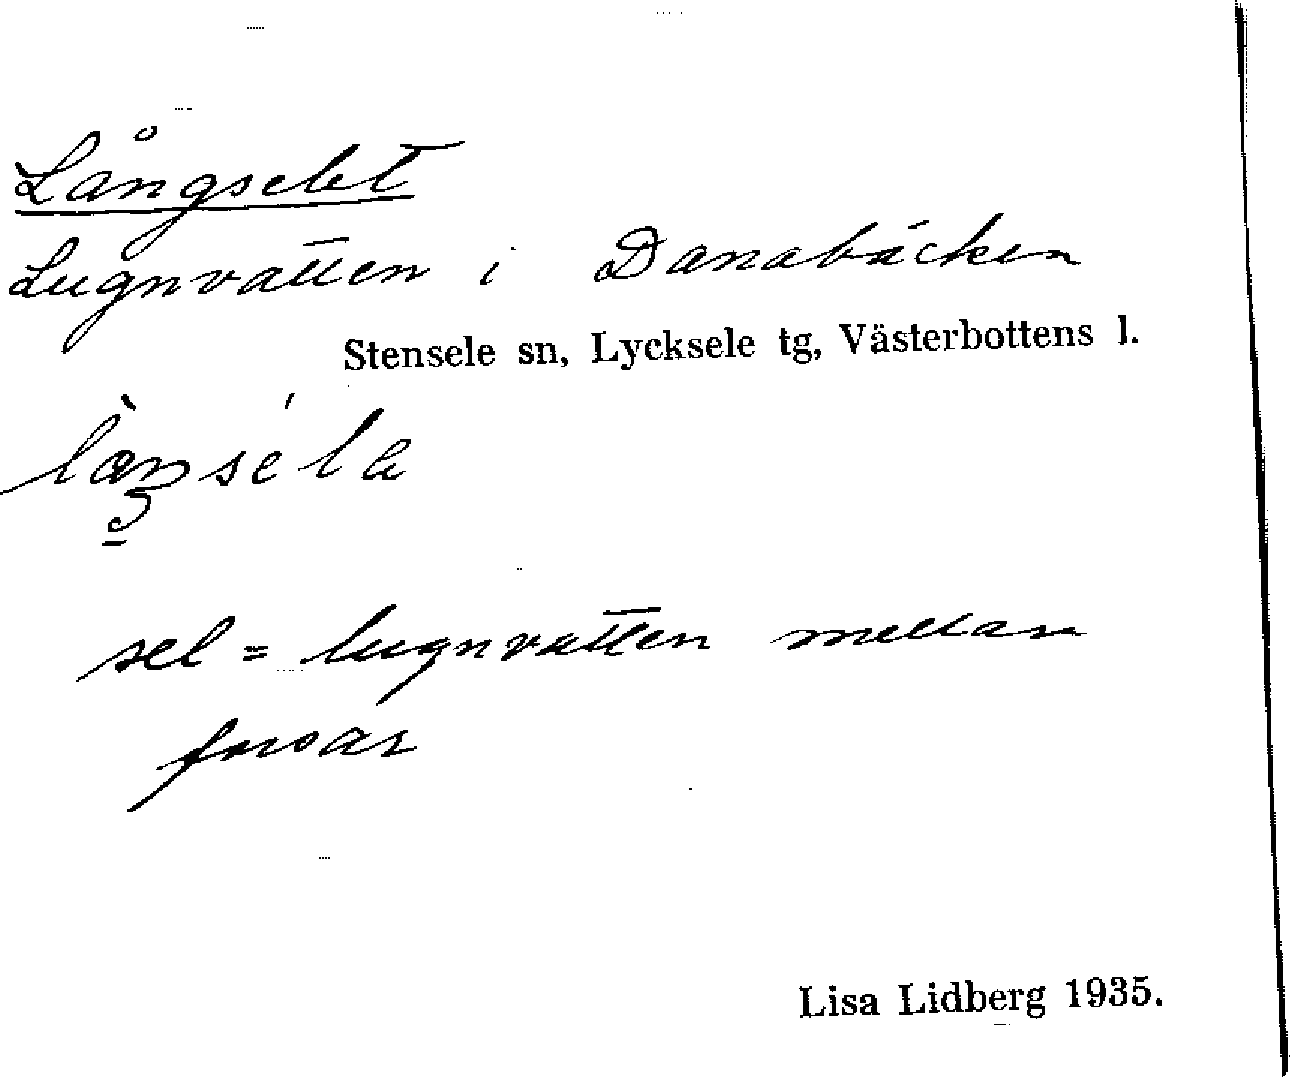 Långselet
Lugnvatten i Danabäcken
Stensele sn, Lycksele tg, Västerbottens l.
sel = lugnvatten mellan
forsar
Lisa Lidberg 1935.